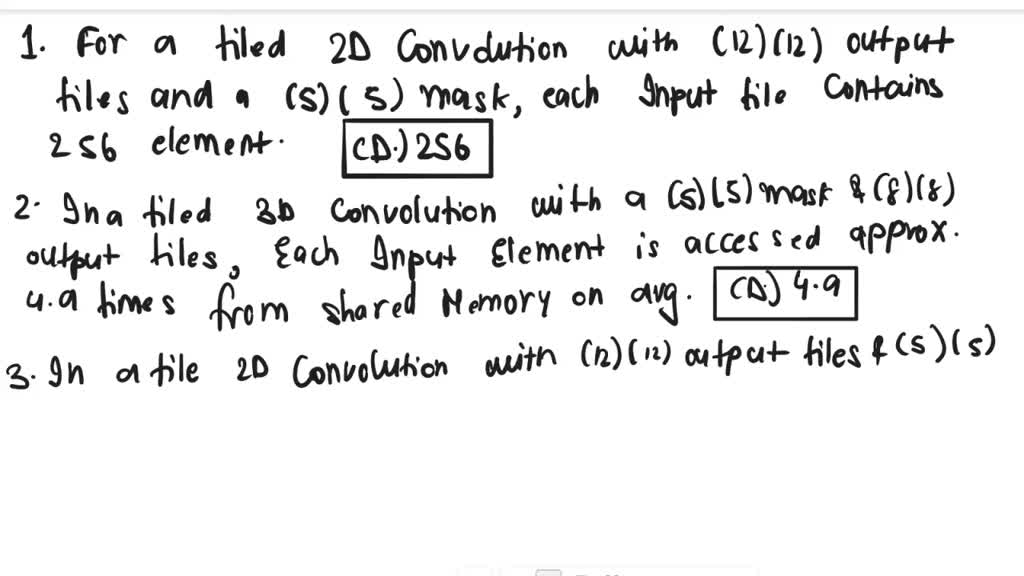 1. For a tiled 2D Convolution with (12)(12) output
tiles and a (5)(5) mask, each Input tile Contains
256 element. (D.) 256
2. In a tiled 3D Convolution with a (5)(5) mask & (8)(8)
output tiles, Each Input Element is accessed approx.
4.9 times from shared Memory on avg. (D.) 4.9
3. In a tile 2D Convolution with (12)(12) output tiles & (5)(5)